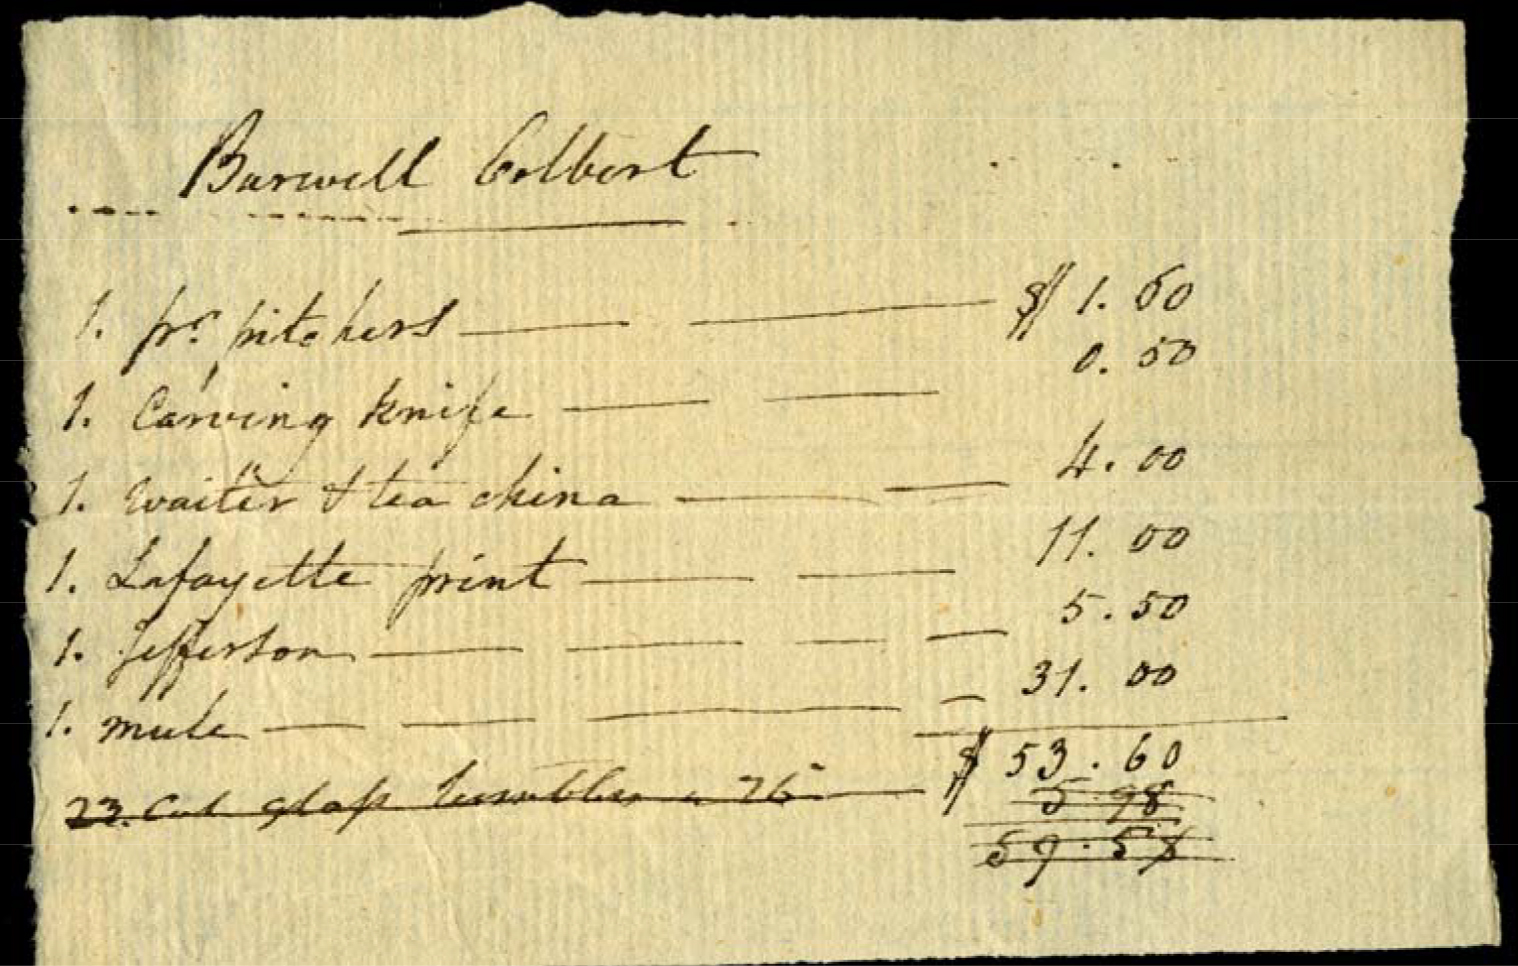 Burwell Colbert
1. pr. pitchers — — $ 1.60
1. Carving knife — — 0.50
1. waiter & tea china — — 4.00
1. Lafayette print — — 11.00
1. Jefferson — — — — 5.50
1. mule — — — — 31.00
$ 53.60
23. Cut glass tumblers a 26 — 5.98
59.58